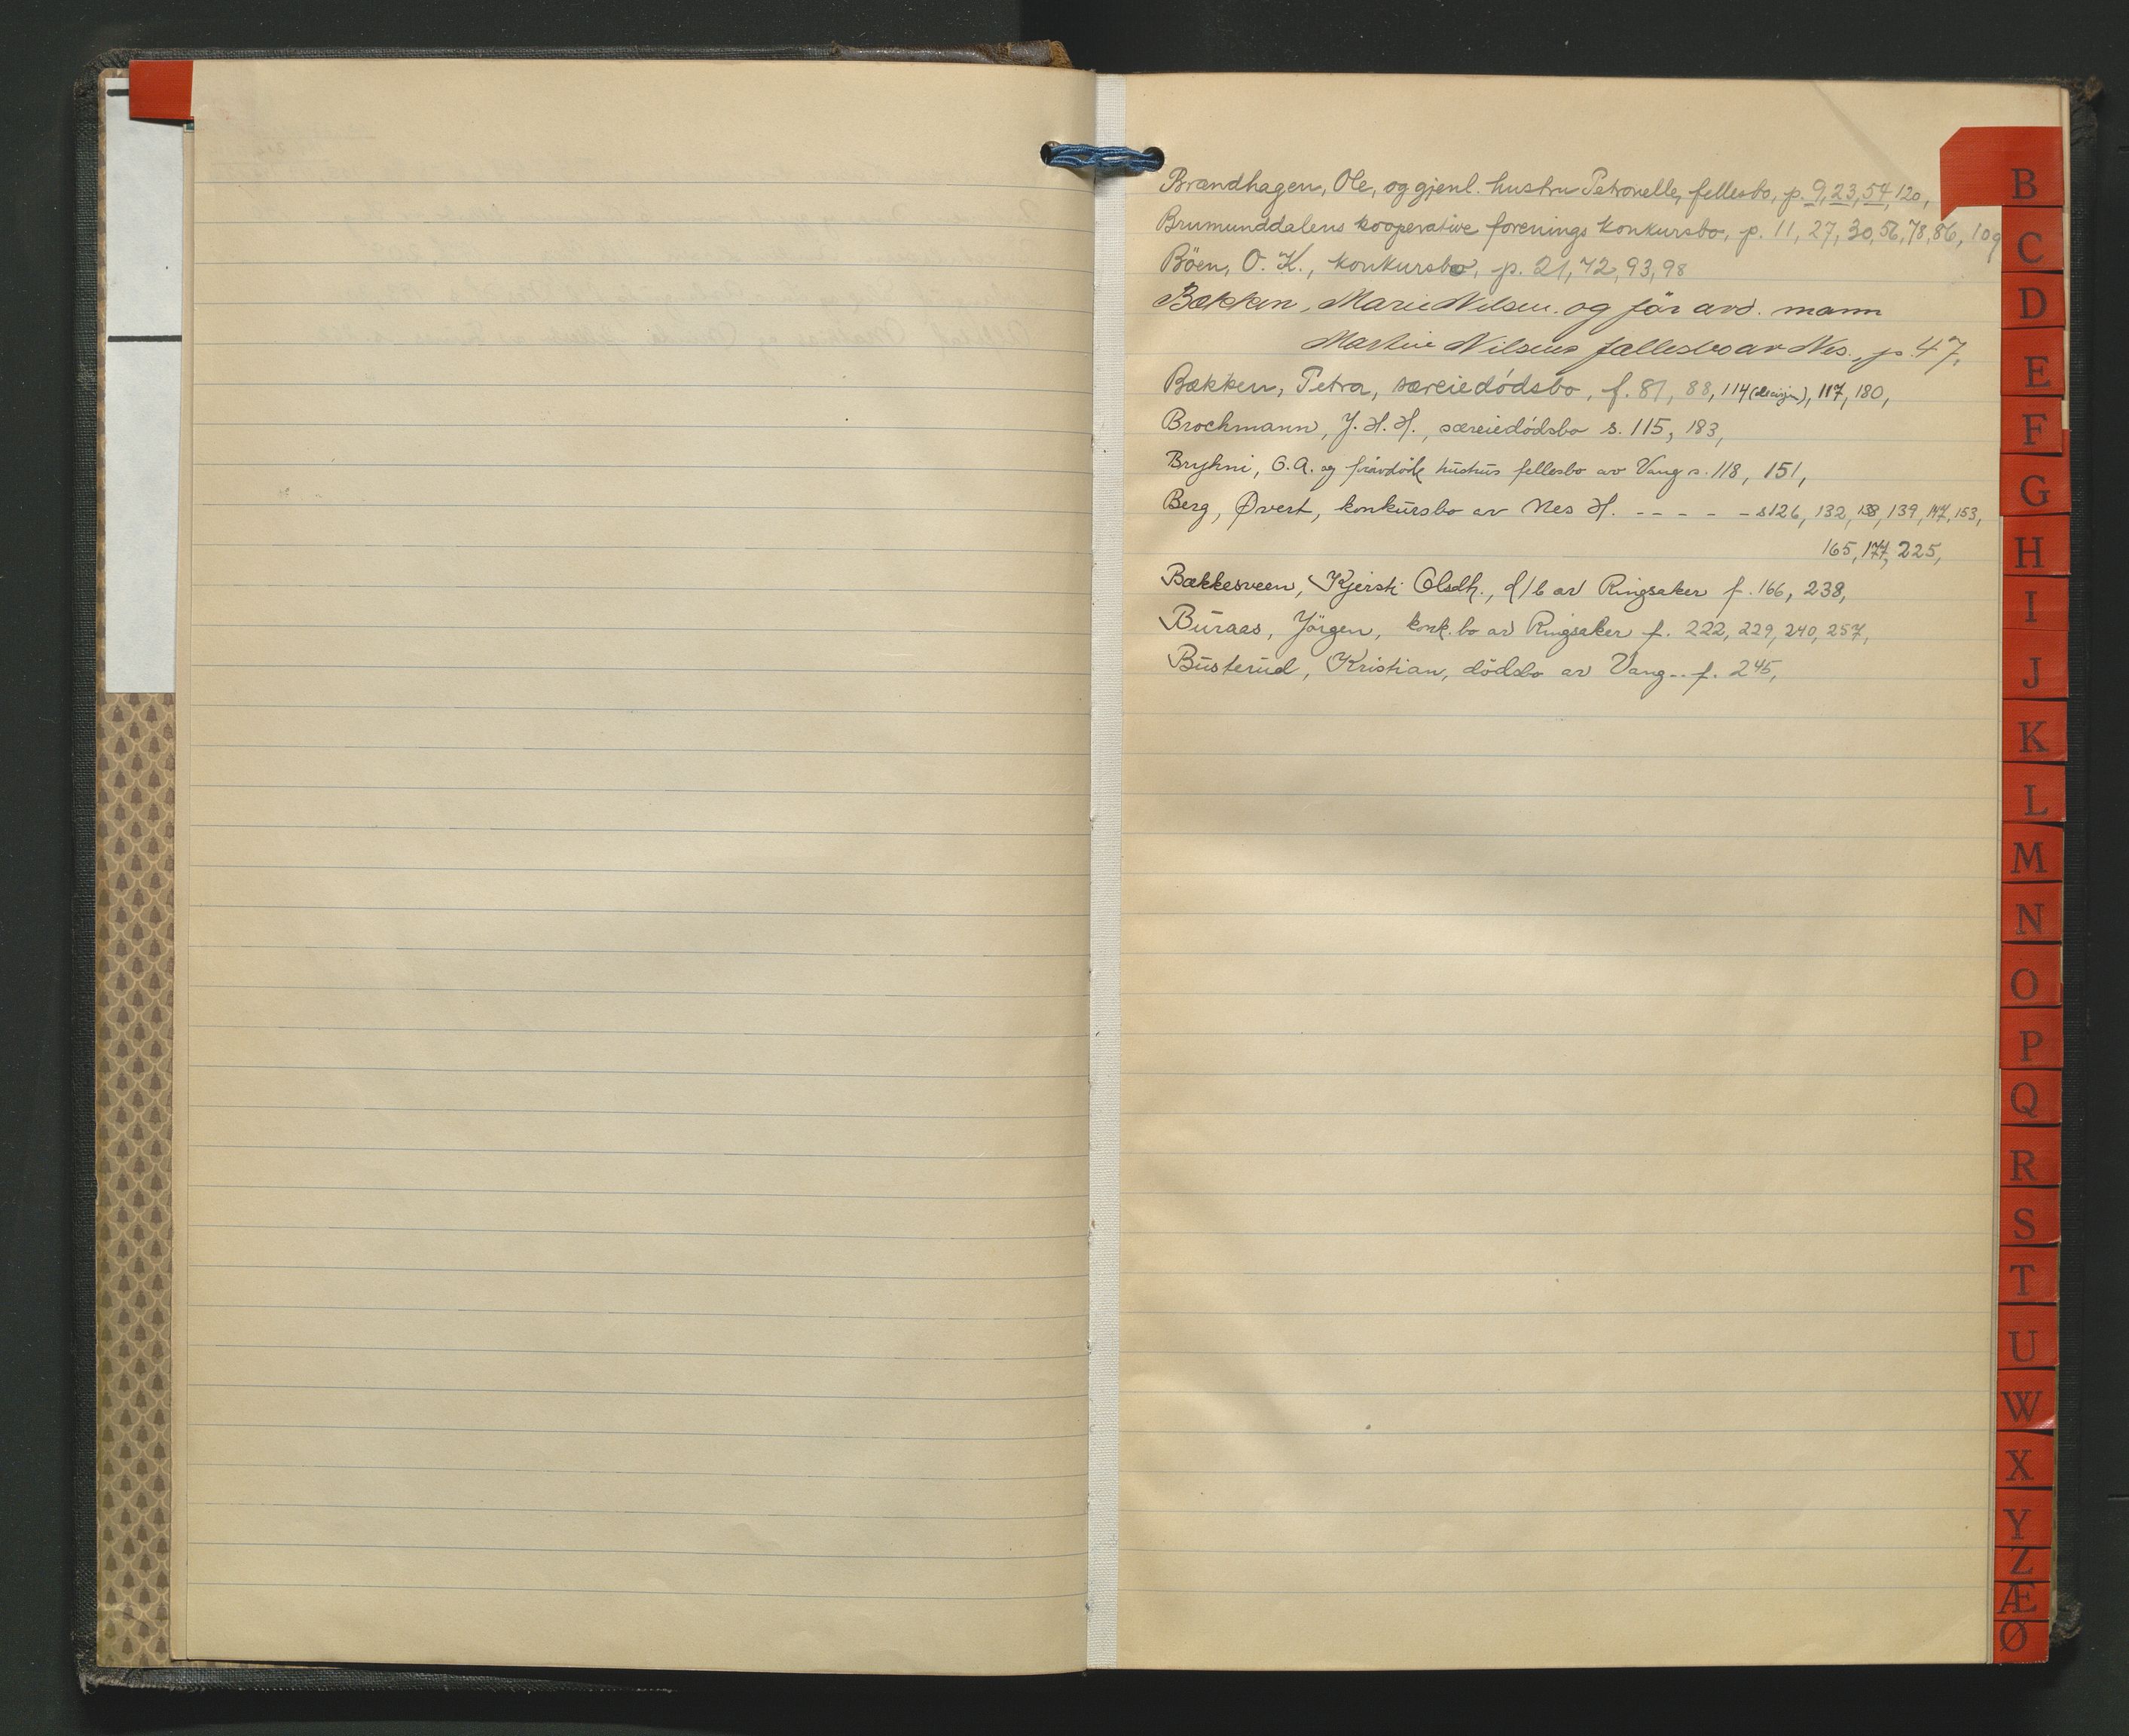 Brandhagen, Ole, og gjenl. hustru Petronelle, fellesbo, p. 9, 23, 54, 120,
Brumunddalens kooperative forenings konkursbo, p. 11, 27, 30, 56, 78, 86, 109
Böen, O. K., konkursbo, p. 21, 72, 93, 98
Bækken, Marie Nilsen og för avd. mann
Martin Nilsens fællesbo av Nes, p. 47,
Bækken, Petra, særeiedödsbo, f. 81, 88, 114 117, 180,
Brochmann, J. H. H., særeiedödsbo s. 115, 183,
Bryhni, O. A. og hustrus fellesbo av Vang s. 118, 151,
Berg, Øvert, konkursbo av Nes H. - - - - - s 126, 132, 138, 139, 147, 153,
165, 177, 225,
Bækkesveen, Kjersti Olsdtr., d/b av Ringsaker f. 166, 238,
Buraas, Jörgen, konk. bo av Ringsaker f. 222, 229, 240, 257,
Busterud, Kristian, dödsbo av Vang - - f. 245,
B
C
D
E
F
G
H
I
J
K
L
M
N
O
P
Q
R
S
T
U
W
X
Y
Z
Æ
Ø